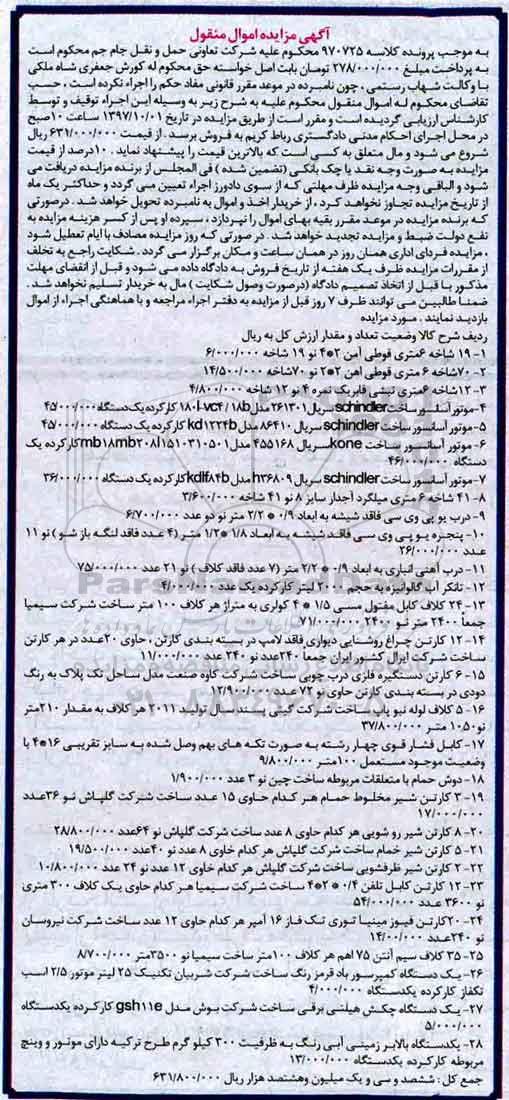 آگهی مزایده اموال منقول
به موجب پرونده کلاسه ۹۷۰۷۲۵ محکوم علیه شرکت تعاونی حمل و نقل جام جم محکوم است
به پرداخت مبلغ ۲۷۸/۰۰۰/۰۰۰ تومان بابت اصل خواسته حق محکوم له کورش جعفری شاه ملکی
با وکالت شهاب رستمی ، چون نامبرده در موعد مقرر قانونی مفاد حکم را اجراء نکرده است ، حسب
تقاضای محکوم له اموال منقول محکوم علیه به شرح زیر به وسیله این اجراء توقیف و توسط
کارشناس ارزیابی گردیده است و مقرر است از طریق مزایده در تاریخ ۱۳۹۷/۱۰/۰۱ ساعت ۱۰صبح
در محل اجرای احکام مدنی دادگستری رباط کریم به فروش برسد . از قیمت ۶۳۱/۰۰۰/۰۰۰ ریال
شروع می شود و مال متعلق به کسی است که بالاترین قیمت را پیشنهاد نماید . ۱۰درصد از قیمت
مزایده به صورت وجه نقد یا چک بانکی (تضمین شده ) فی المجلس از برنده مزایده دریافت می
شود و الباقی وجه مزایده ظرف مهلتی که از سوی دادورز اجراء تعیین می گردد و حداکثر یک ماه
از تاریخ مزایده تجاوز نخواهد کرد ، از خریدار اخذ و اموال به نامبرده تحویل خواهد شد . درصورتی
که برنده مزایده در موعد مقرر بقیه بهای اموال را نپردازد ، سپرده او پس از کسر هزینه مزایده به
نفع دولت ضبط و مزایده تجدید خواهد شد . در صورتی که روز مزایده مصادف با ایام تعطیل شود
، مزایده فردای اداری همان روز در همان ساعت و مکان برگزار می گردد . شکایت راجع به تخلف
از مقررات مزایده ظرف یک هفته از تاریخ فروش به دادگاه داده می شود و قبل از انقضای مهلت
مذکور یا قبل از اتخاذ تصمیم دادگاه (درصورت وصول شکایت ) مال به خریدار تسلیم نخواهد شد .
ضمنا طالبین می توانند ظرف ۷ روز قبل از مزایده به دفتر اجراء مراجعه و با هماهنگی اجراء از اموال
بازدید نمایند . مورد مزایده
ردیف شرح کالا وضعیت تعداد و مقدار ارزش کل به ریال
۱- ۱۹ شاخه ۶متری قوطی آهن ۲*۴ نو ۱۹ شاخه ۶/۰۰۰/۰۰۰
۲- ۷۰شاخه ۶ متری قوطی اهن ۲*۲ نو ۷۰شاخه ۱۴/۵۰۰/۰۰۰
۳- ۱۲شاخه ۶ متری نبشی فابریک نمره ۴ نو ۱۲ شاخه ۴/۸۰۰/۰۰۰
۴-موتور آسانسور ساخت schindler سریال ۲۶۱۳۰۱ مدل ۱۸۰l-vc۴/۱۸b کارکرده یک دستگاه ۴۵/۰۰۰/۰۰۰
۵- موتور آسانسور ساخت schindler سریال ۸۶۴۱۰ مدل kd۱۲۲۴b کارکرده یک دستگاه ۴۵/۰۰۰/۰۰۰
۶- موتور آسانسور ساخت kone سریال ۴۵۵۱۶۸ مدل mb۱۸mb۲۰۸l۱۵۱۰۳۱۰۵۰۱ کارکرده یک
دستگاه ۴۶/۰۰۰/۰۰۰
۷-موتور آسانسور ساخت schindler سریال h۳۶۸۰۹ مدل kdlf۸۴b کارکرده یک دستگاه ۳۶/۰۰۰/۰۰۰
۸- ۴۱ شاخه ۶ متری میلگرد آجدار سایز ۸ نو ۴۱ شاخه ۳/۶۰۰/۰۰۰
۹- درب یو پی وی سی فاقد شیشه به ابعاد ۰/۹ * ۲/۲ متر نو دو عدد ۶/۷۰۰/۰۰۰
۱۰- پنجره یو پی وی سی فاقد شیشه به ابعاد ۱/۸ * ۱/۲ متر (۴ عدد فاقد لنگه باز شو ) نو ۱۱
عدد ۲۶/۰۰۰/۰۰۰
۱۱- درب آهنی انباری به ابعاد ۰/۹ * ۲/۲ متر (۷ عدد فاقد کلاف ) نو ۲۱ عدد ۷۵/۰۰۰/۰۰۰
۱۲- تانکر آب گالوانیزه به حجم ۲۰۰۰ لیتر کارکرده یک عدد ۴/۰۰۰/۰۰۰
۱۳- ۲۴ کلاف کابل مفتول مسی ۱/۵ * ۴ کولری به متراژ هر کلاف ۱۰۰ متر ساخت شرکت سیمیا
جمعاً ۲۴۰۰ متر نو ۲۴۰۰ ۷۱/۰۰۰/۰۰۰
۱۴- ۱۲ کارتن چراغ روشنایی دیواری فاقد لامپ در بسته بندی کارتن ، حاوی ۲۰عدد در هر کارتن
ساخت شرکت ایرال کشور ایران جمعاً ۲۴۰عدد نو ۲۴۰ عدد ۱۱/۰۰۰/۰۰۰
۱۵- ۶ کارتن دستگیره فلزی درب چوبی ساخت شرکت کاوه صنعت مدل ساحل تک پلاک به رنگ
دودی در بسته بندی کارتن حاوی نو ۷۲ عدد ۱۲/۹۰۰/۰۰۰
۱۶- ۵ کلاف لوله نیو پاپ ساخت شرکت گیتی پسند سال تولید ۲۰۱۱ هر کلاف به مقدار ۲۱۰متر
نو ۱۰۵۰ متر ۳۷/۸۰۰/۰۰۰
۱۷- کابل فشار قوی چهار رشته به صورت تکه های بهم وصل شده به سایز تقریبی ۱۶*۴ با
وضعیت موجود مستعمل ۱۰۰متر ۹/۸۰۰/۰۰۰
۱۸- دوش حمام با متعلقات مربوطه ساخت چین نو ۳ عدد ۱/۹۰۰/۰۰۰
۱۹- ۳ کارتن شیر مخلوط حمام هر کدام حاوی ۱۵ عدد ساخت شرکت گلپاش نو ۳۶عدد
۱۷/۰۰۰/۰۰۰
۲۰- ۸ کارتن شیر رو شویی هر کدام حاوی ۸ عدد ساخت شرکت گلپاش نو ۶۴عدد ۲۸/۸۰۰/۰۰۰
۲۱- ۵ کارتن شیر حمام ساخت شرکت گلپاش هر کدام خاوی ۸ عدد نو ۴۰عدد ۱۹/۵۰۰/۰۰۰
۲۲- ۲ کارتن شیر ظرفشویی ساخت شرکت گلپاش هر کدام خاوی ۱۲ عدد نو ۲۴ عدد ۱۰/۸۰۰/۰۰۰
۲۳- ۱۲ کارتن کابل تلفن ۰/۴ * ۲*۴ ساخت شرکت سیمیا هر کدام حاوی یک کلاف ۳۰۰ متری
نو ۳۶۰۰ عدد ۵۴/۰۰۰/۰۰۰
۲۴- ۲۰کارتن فیوز مینیا توری تک فاز ۱۶ آمپر هر کدام حاوی ۱۲ عدد ساخت شرکت نیروسان
نو ۲۴۰عدد ۱۴/۰۰/۰۰۰
۲۵- ۳۵ کلاف سیم آنتن ۷۵ اهم هر کلاف ۱۰۰متر ساخت سیمیا نو ۳۵۰۰متر ۸/۷۰۰/۰۰۰
۲۶- یک دستگاه کمپرسور باد قرمز رنگ ساخت شرکت شربیان تکنیک ۲۵ لیتر موتور ۲/۵ اسب
تکفاز کارکرده یکدستگاه ۴/۰۰۰/۰۰۰
۲۷- یک دستگاه چکش هیلتی برقی ساخت شرکت بوش مدل gsh۱۱e کارکرده یکدستگاه
۵/۰۰۰/۰۰۰
۲۸- یکدستگاه بالابر زمینی آبی رنگ به ظرفیت ۳۰۰ کیلو گرم طرح ترکیه دارای موتور و وینچ
مربوطه کارکرده یکدستگاه ۱۳/۰۰۰/۰۰۰
جمع کل : ششصد و سی و یک میلیون وهشتصد هزار ریال ۶۳۱/۸۰۰/۰۰۰